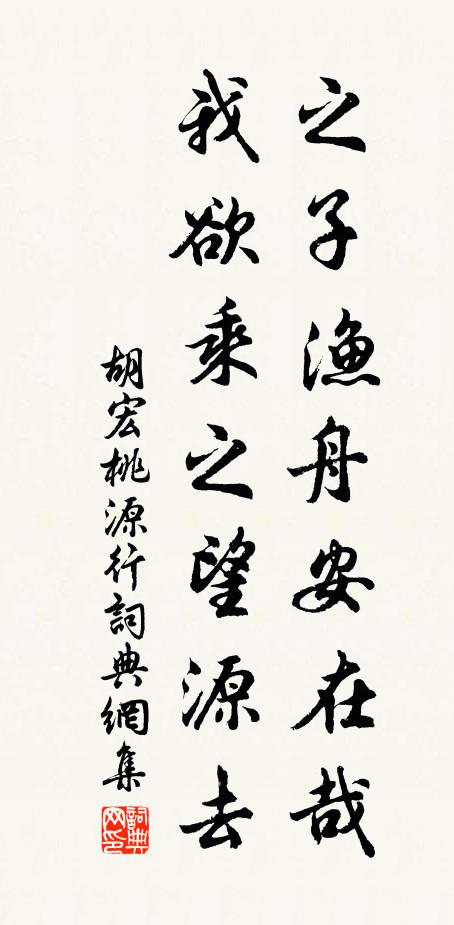 之子漁舟安在哉
我欲乘之望源去
胡宏桃源行詞典網集
詞典网印